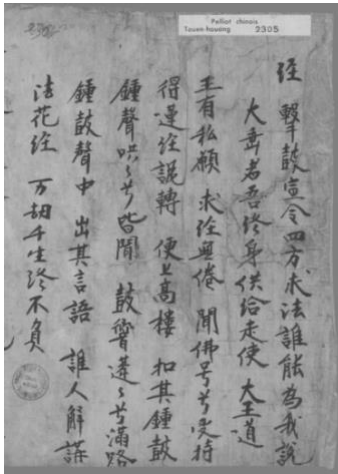 Pelliot chinois
Touen-houang 2305
經 擊鼓宣令四方求法誰能為我說
大乘者吾終身供給走使 大王道
王有私願 求經無倦 聞佛号兮受持
得蓮經 轉 便上高樓 扣其鍾鼓
鍾聲哄〻兮皆聞 鼓響蓬〻兮滿路
鍾鼓聲中 出其言語 誰人解講
法花經 万劫千生終不負